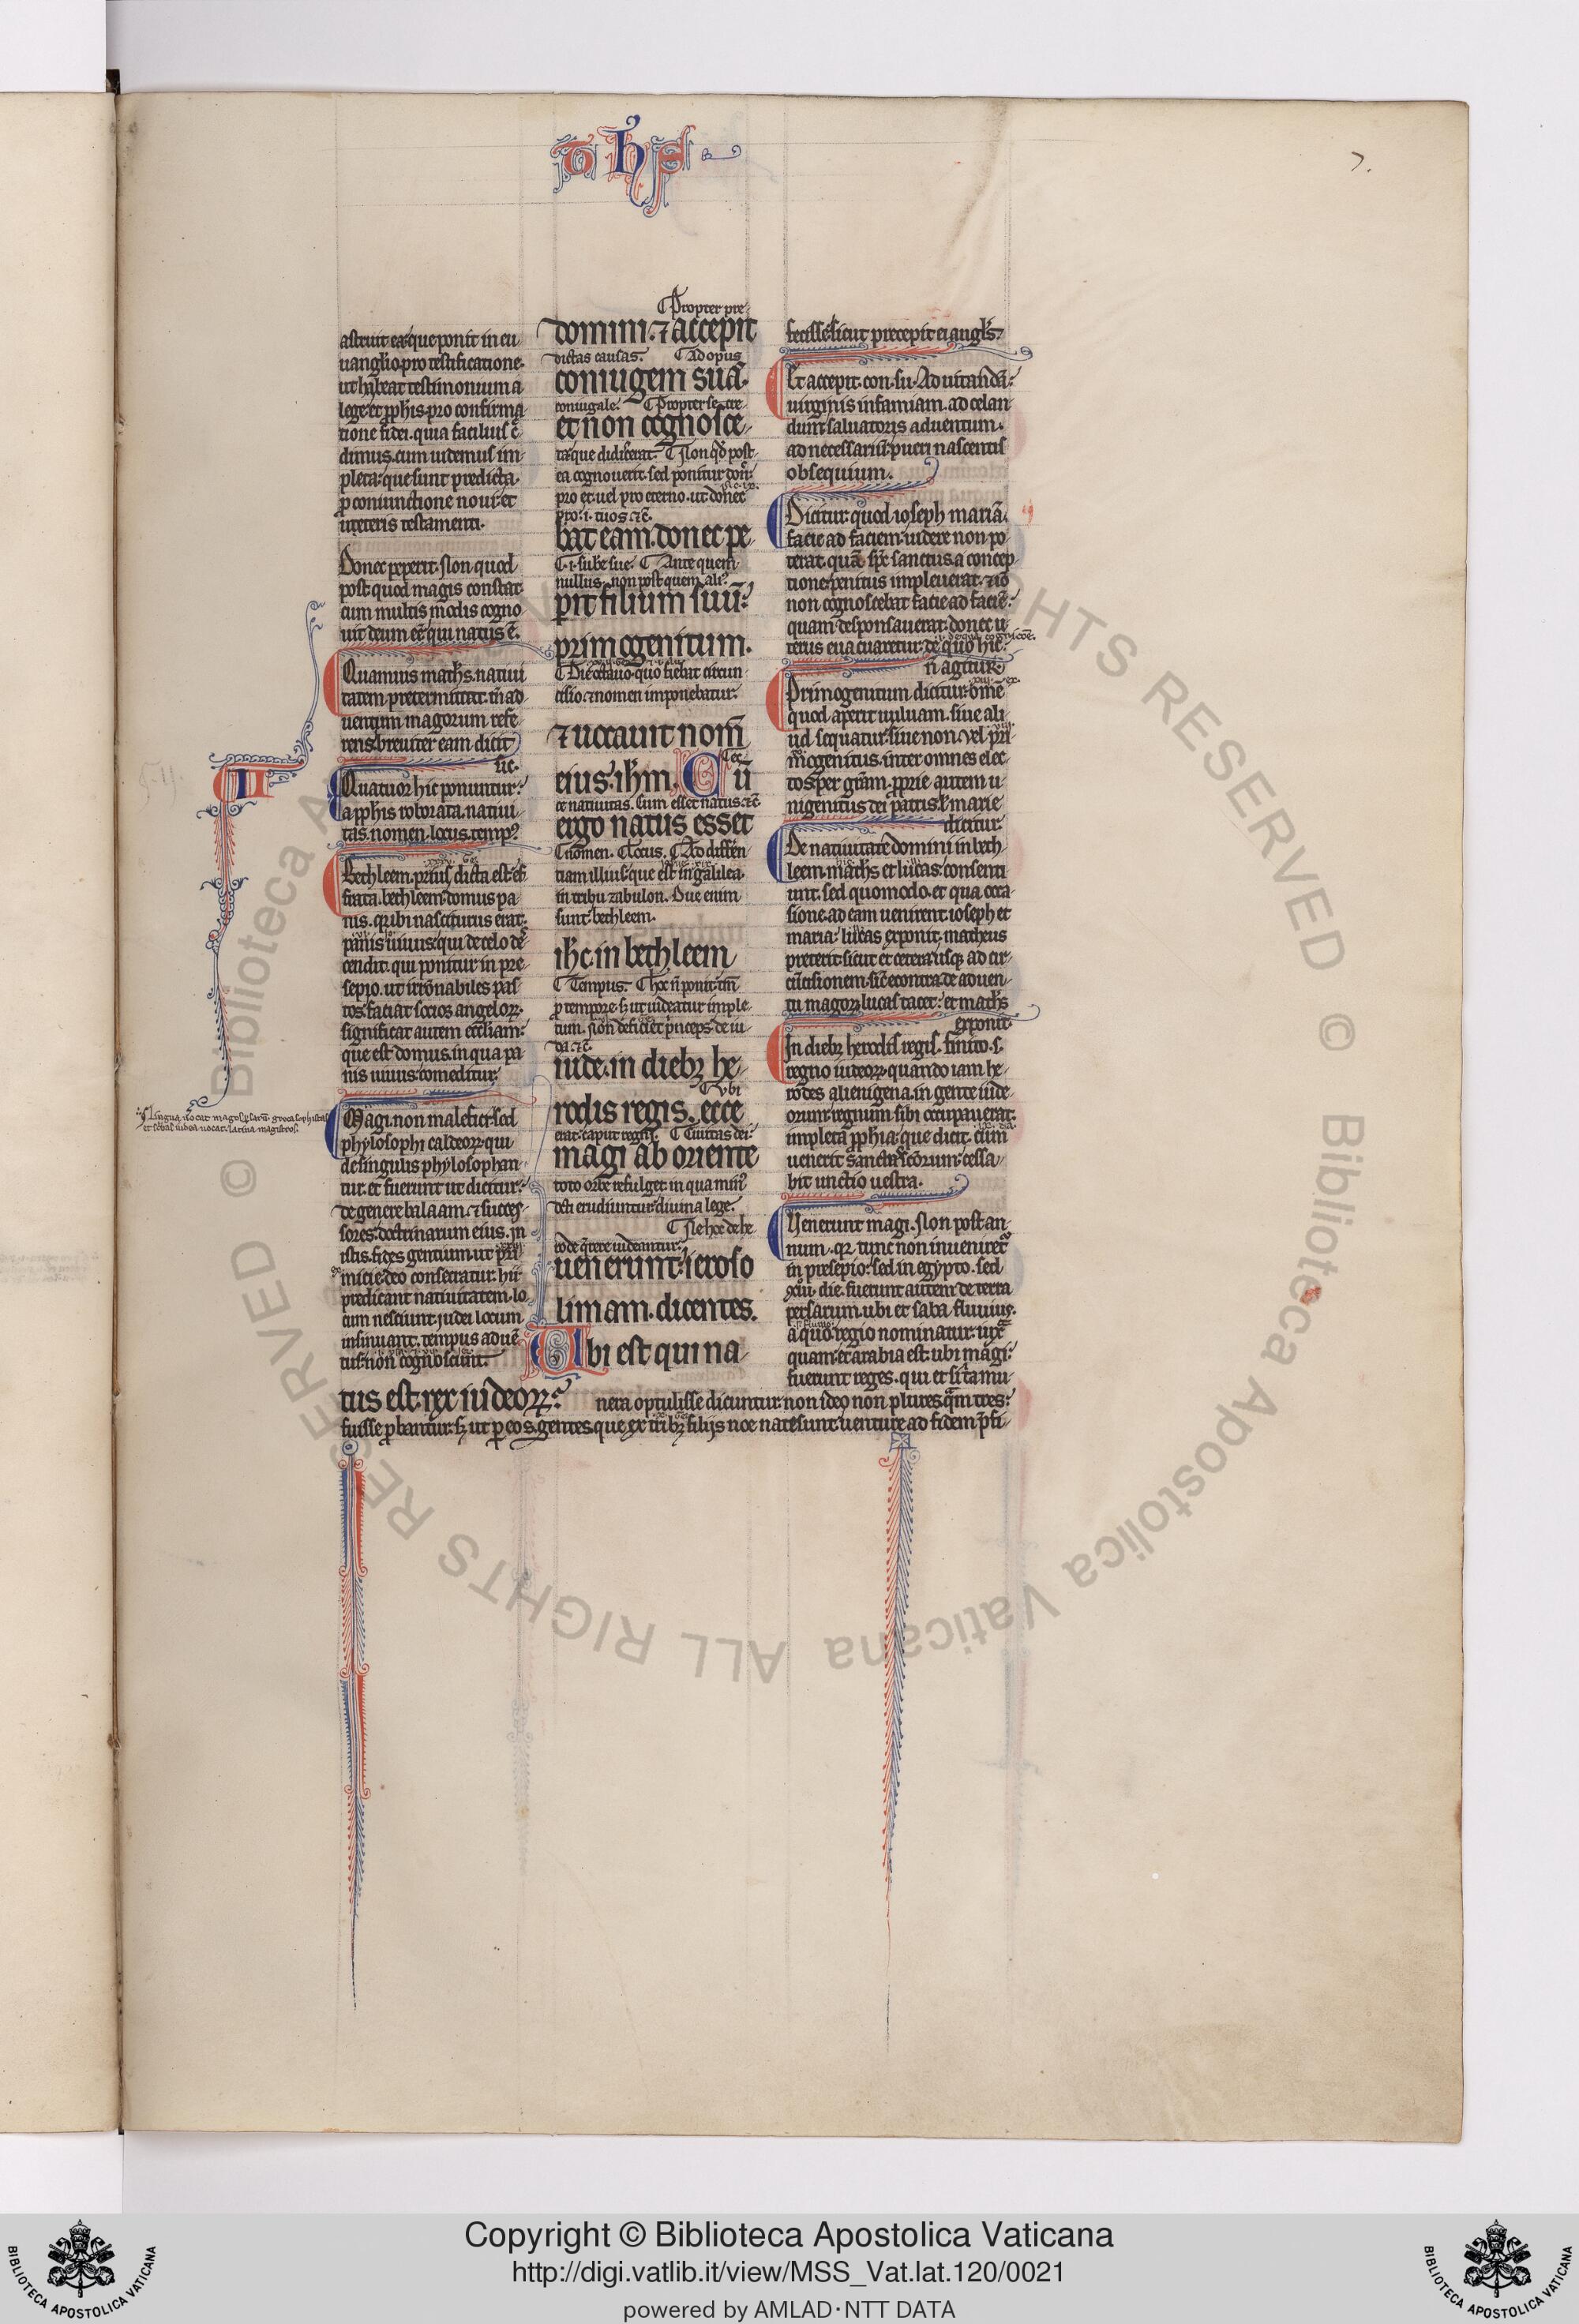 astruit ea: que ponit in eu-
uang̃lio pro testificatione.
ut habeat testimonium a
lege et ꝓphis. pro confirma
tione fidei. quia facilius c̃
dimus. cum uidemus im-
pleta: que sunt predicta.
ꝑ coniunctione noui: et
ueteris testamenti.
Donec peperit. Non quod
post: quod magis constat.
cum multis modis cogno
uit deum eē: qui natus ē.
Quamuis math̃s. natiui
tatem pretermittit. tñ ad
uentum magorum refe-
rens: breuiter eam dicit
sic.
Quatuor hic ponuntur:
a ꝓphis roborata. natiui
tas. nomen. locus. temp⁹.
Bethleem. prius dicta est ef
frata. bethleem: domus pa-
nis. qꝛ ibi nasciturus erat:
panis uiuus: qui de celo de-
cendit. qui ponitur in pre-
sepio. ut irrõnabiles pas-
tos: faciat socios angeloꝝ.
significat autem ecc̃iam:
que est domus. in qua pa-
nis uiuus: comeditur.
Magi. non malefici: sed
phylosophi caldeoꝝ. qui
de singulis phylosophan-
tur. et fuerunt ut dicitur:
de genere balaam. ⁊ succes-
sores: doctrinarum eius. In
istis. fides gentium: ut pri
micie: deo consecratur. hii
predicant natiuitatem. lo
cum nesciunt. iudei locum
insinuant. tempus aduẽ
tus: non cognoscunt.
Propter pre-
domini. ⁊ accepit
dictas causas. Ad opus
coniugem suã.
coniugale. Propter secre-
et non cognosce-
ta: que didicerat. Non qd̃ post-
ea cognouerit. sed ponitur don̄:
pro et: uel pro eterno. ut donec
bat eam. donec pe-
.i. sube sue. Ante quem
nullus. non post quem. ali⁹
perit filium suũ:
primogenitum.
Die octauo. quo fiebat circun
cisio: ⁊ nomen imponebatur.
⁊ uocauit nom̃
eius. ihm̃. Cũ
ce natiuitas. Cum esset natus. ⁊c̃
ergo natus esset
nomen. Locus. Ad differen
tiam illius: que est in galilea.
in tribu zabulon. Due enim
sunt: bethleem.
ihc̃. in bethleem
Tempus. Hoc ñ ponit. tñ
ꝓ tempore. sꝫ ut uideatur imple-
tum. Non deficiet p̃nceps de iu-
da. ⁊c̃
iude. in diebꝫ he-
Vbi
rodis regis. ecce
erat caput regni. Ciuitas dei:
magi ab oriente
toto orbe refulget in qua miñ⁹
docti erudiuntur: diuina lege.
Ne hoc de he
rode q̃rere uideantur.
uenerunt: ieroso
limam. dicentes.
Vbi est qui na-
fecisse: sicut precepit ei angl̃s.
Et accepit. con. su. Ad uitandã:
uirginis infamiam. ad celan
dum: saluatoris aduentum.
ad necessariũ: pueri nascentis
obsequium.
Dicitur quod ioseph mariã.
facie ad faciem: uidere non po-
terat. quã spc̃ sanctus a concep
tione: penitus impleuerat. ⁊ iõ
non cognoscebat facie ad faciẽ:
quam desponsauerat: donec u-
terus euacuaretur. de quo hic:
ñ agitur.
Primogenitum dicitur: omẽ
quod aperit uuluam. siue ali
ud sequatur: siue non. vel pri-
mogenitus: inter omnes elec-
tos: per grãm. ꝓprie autem u-
nigenitus dei patris: ⁊ marie
dicitur.
De natiuitate domini in beth
leem. math̃s et lucas: consenti
unt. sed quomodo. et qua occa
sione. ad eam uenirent. ioseph et
maria: lucas exponit. matheus
preterit: sicut et cetera usqꝫ ad cir-
cũcisionem. sic̃ econtra: de aduen-
tu magoꝝ lucas tacet: et math̃s
exponit.
In diebꝫ herodis regis. finito .s.
regno iudeoꝝ. quando iam he-
rodes alienigena. in gente iude-
orum: regnum sibi occupauerat.
impleta ꝓphia: que dicit. cum
uenerit sanctus sc̃orum: cessa-
bit unctio uestra.
Venerunt magi. Non post an-
num. qꝛ tunc non inuenirent
in presepio: sed in egypto. sed
xiii. die. fuerunt autem de terra
persarum. ubi et saba. fluuius.
a quo: regio nominatur. iuxta
quam: et arabia est: ubi magi:
fuerunt reges. qui et si tria mu-
tus est. rex iudeoꝝ: nera optulisse dicuntur: non ideo non plures q̃m tres:
fuisse ꝓbantur: sꝫ ut ꝑ eos. gentes. que ex tribꝫ filijs noe nate sunt: uenture ad fidem p̃fi-
Copyright © Biblioteca Apostolica Vaticana
http://digi.vatlib.it/view/MSS_Vat.lat.120/0021
powered by AMLAD·NTT DATA
BIBLIOTECA APOSTOLICA VATICANA
BIBLIOTECA APOSTOLICA VATICANA
© Biblioteca Apostolica Vaticana ALL RIGHTS RESERVED